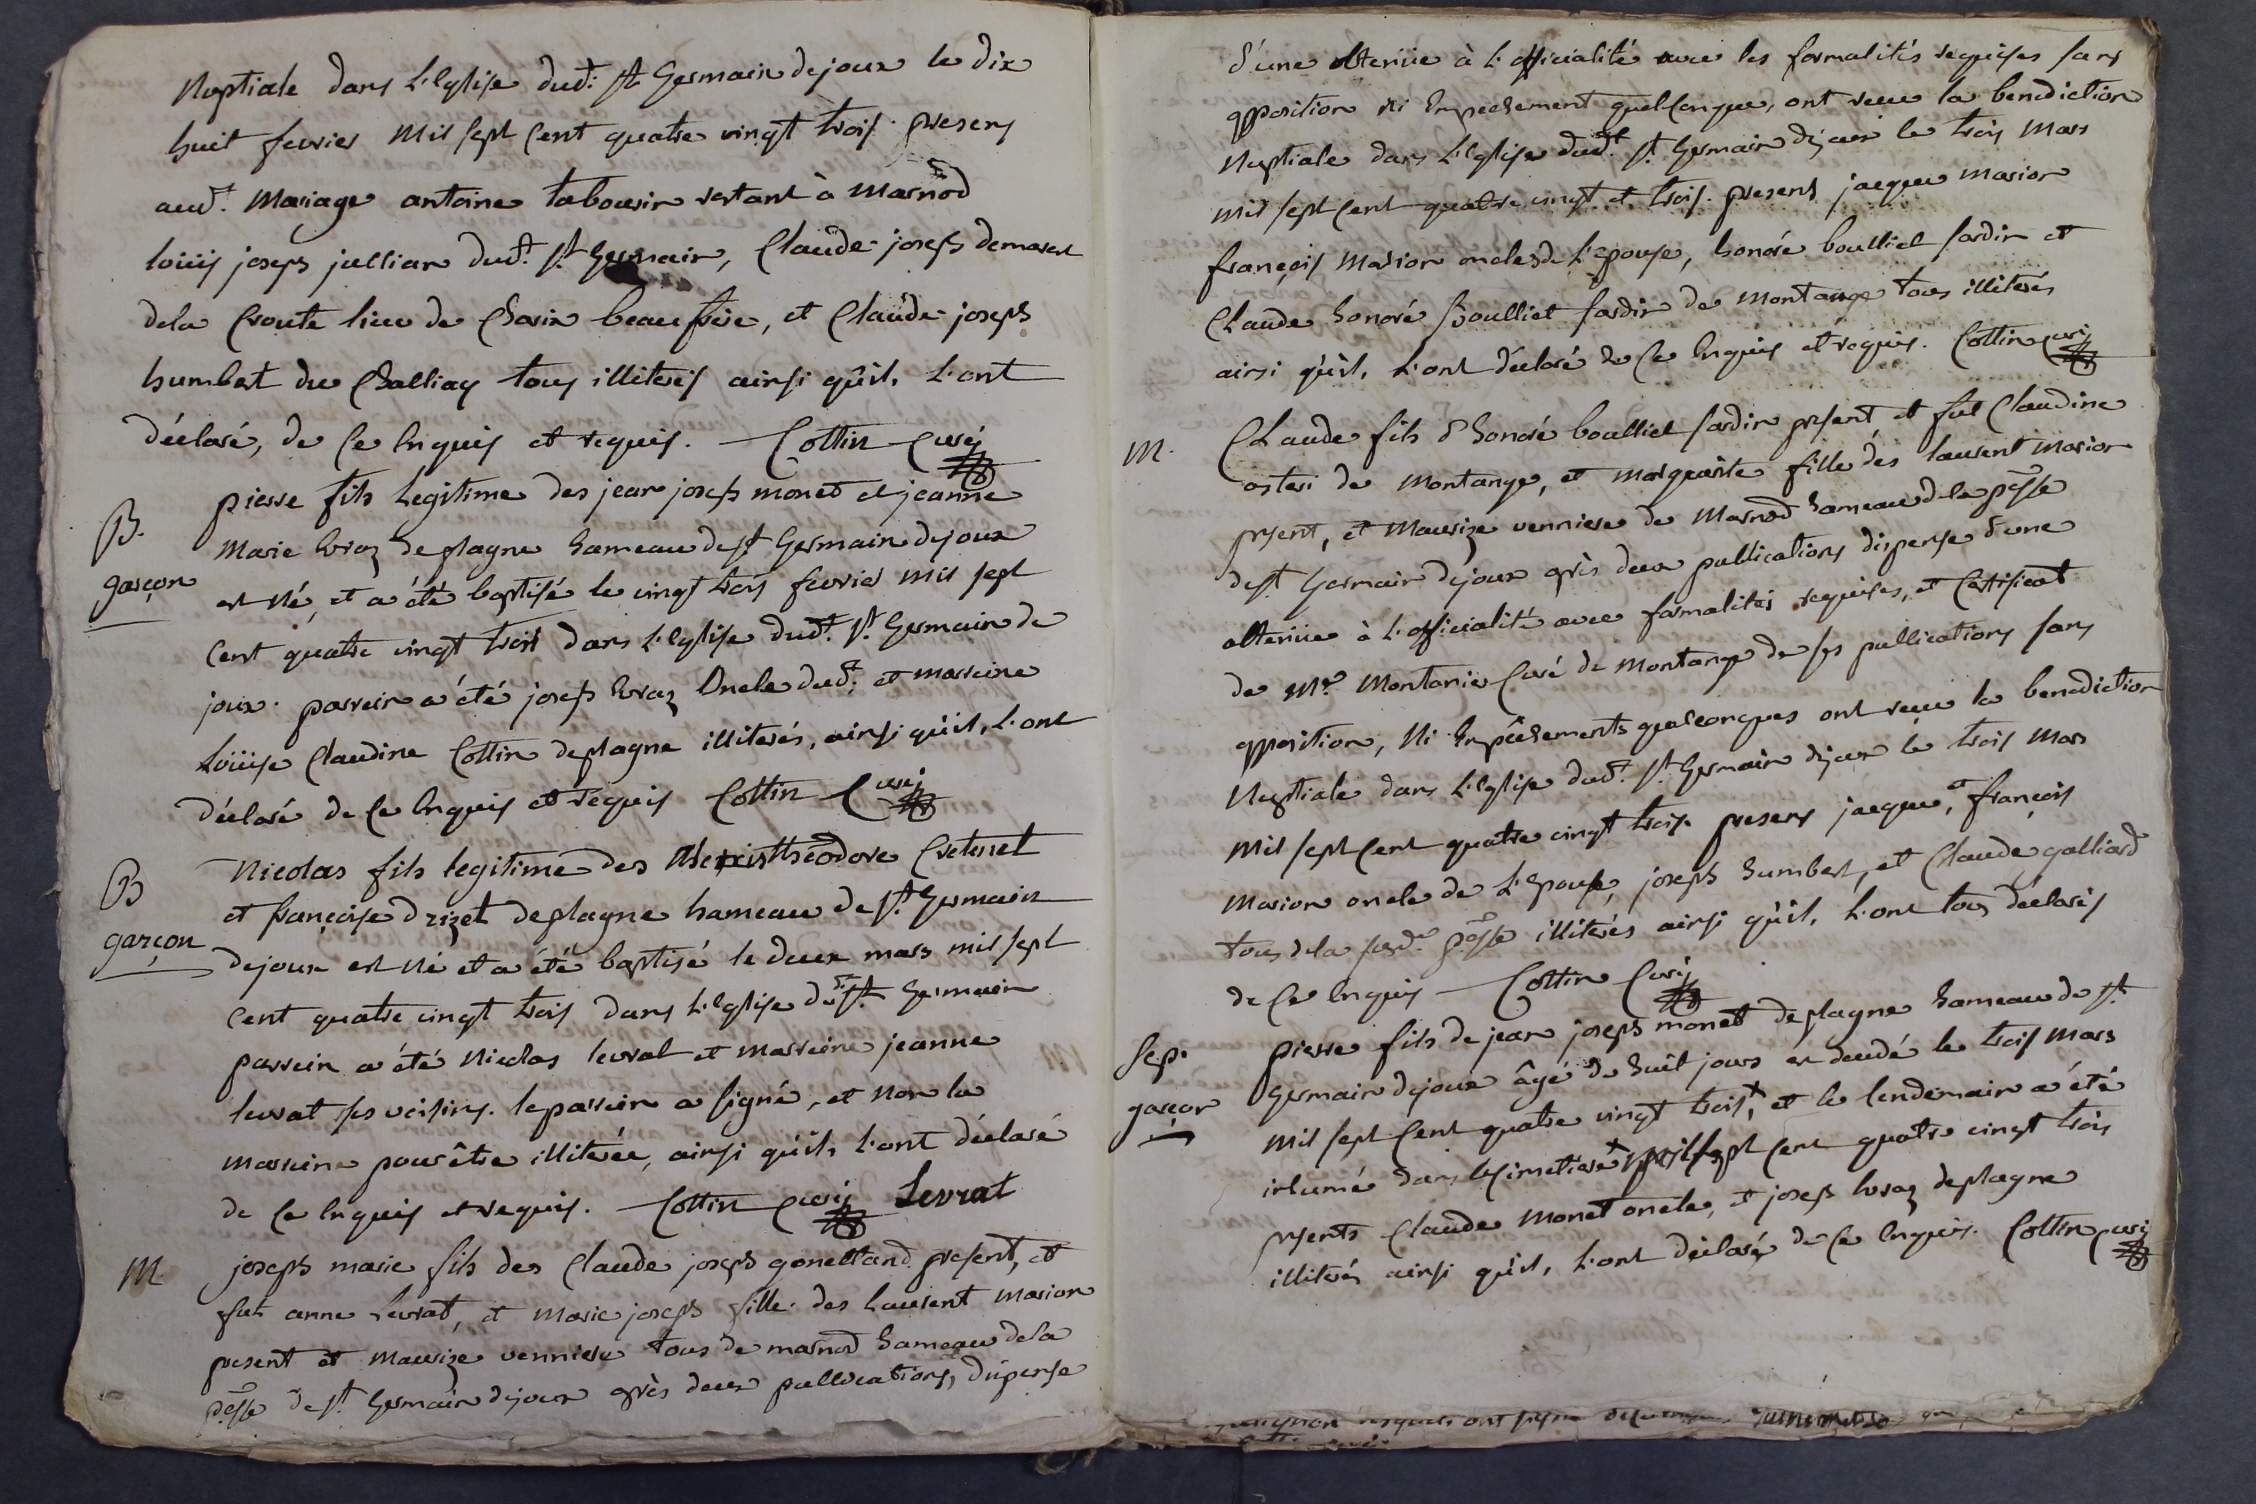 Nuptiale dans L'Eglise dud: st Germain dejoux le dix
huit fevrier Mil sept Cent quatre vingt trois. presens
aud. Mariage antoine tabourin restant à Marnod
loüis joseph jullian dud. st Germain, Claude joseph demarest
dela Croute lieu de Charix beaufrere, et Claude joseph
humbert du Challiay tous illiterés ainsi qu'il, L'ont
déclaré, de Ce Enquis et requis. Cottin Curé
B. garçon
pierre fils Legitime des jean joseph monet et jeanne
Marie Evraz de plagne hameau de st Germain dejoux
est Né, et a été baptisé le vingt trois fevrier Mil sept
Cent quatre vingt trois dans L'Eglise dud. st. Germain de
joux. parrein a été joseph Evraz Oncle dud; et marreine
Loüise Claudine Cottin deplagne illiterés, ainsi qu'il, L'ont
déclaré de Ce Enquis et requis Cottin Curé
B garçon
Nicolas fils legitime des théodore Cretenet
et françoise drizet deplagne hameau de st. Germain
dejoux est Né et a été baptisé le deux mars mil sept
Cent quatre vingt trois dans L'Eglise dud st. Germain
parrein a été Nicolas levrat et Marreine jeanne
levrat ses voisins. le parrein a signé, et Non la
marreine pour être illiterée, ainsi qu'il, L'ont déclaré
de Ce Enquis et requis. Cottin Curé Levrat
M
joseph marie fils des Claude joseph gonelland présent, et
fut anne Levrat, et Marie joseph fille des Laurent Marion
present et Maurize venniere tous de marnod hameau dela
posse de st Germain dejoux après deux publications, dispense
d'une obtenüe à L'officialité avec les formalités requises sans
opposition Ni Empechement quelconque, ont reçu la benediction
Nuptiale dans L'Eglise dud. st. Germain dejoux le trois Mars
mil sept Cent quatre vingt et trois. presens jacque Marion
françois Marion oncles de L'Epouse, honoré boulliet sardin et
Claude honoré boulliet sardin de Montange tous illiterés
ainsi qu'il, L'ont déclaré de Ce Enquis et requis. Cottin Curé
M.
Claude fils d'honoré boulliet sardin présent, et fut Claudine
de Montange, et marguerite fille des laurent marion
présent, et Maurize venniere de Marnod hameau dela posse
de st Germain dejoux après deux publications dispense d'une
obtenüe à L'officialité avec formalités requises, et Certificat
de Mr. Montanie Curé de Montange de ses publications sans
opposition, Ni Empêchements quelconques ont reçu la benediction
Nuptiale dans L'Eglise dud. st. Germain dejoux le trois Mars
Mil sept Cent quatre vingt trois. presens jacque, et françois
Marion oncle de L'Epouse, joseph humbert, et Claude galliard
tous dela posse illiterés ainsi qu'il, L'ont tous déclarés
de Ce Enquis Cottin Curé
Sep. garçon
pierre fils de jean joseph monet deplagne hameau de st.
Germain dejoux âgé de huit jours est decedé le trois Mars
Mil sept Cent quatre vingt trois, et le lendemain a été
inhumé dans le Cimetiere Mil sept Cent quatre vingt trois
présents Claude Monet oncle, et joseph Evraz deplagne
illiterés ainsi qu'il, L'ont déclaré de Ce Enquis. Cottin Curé